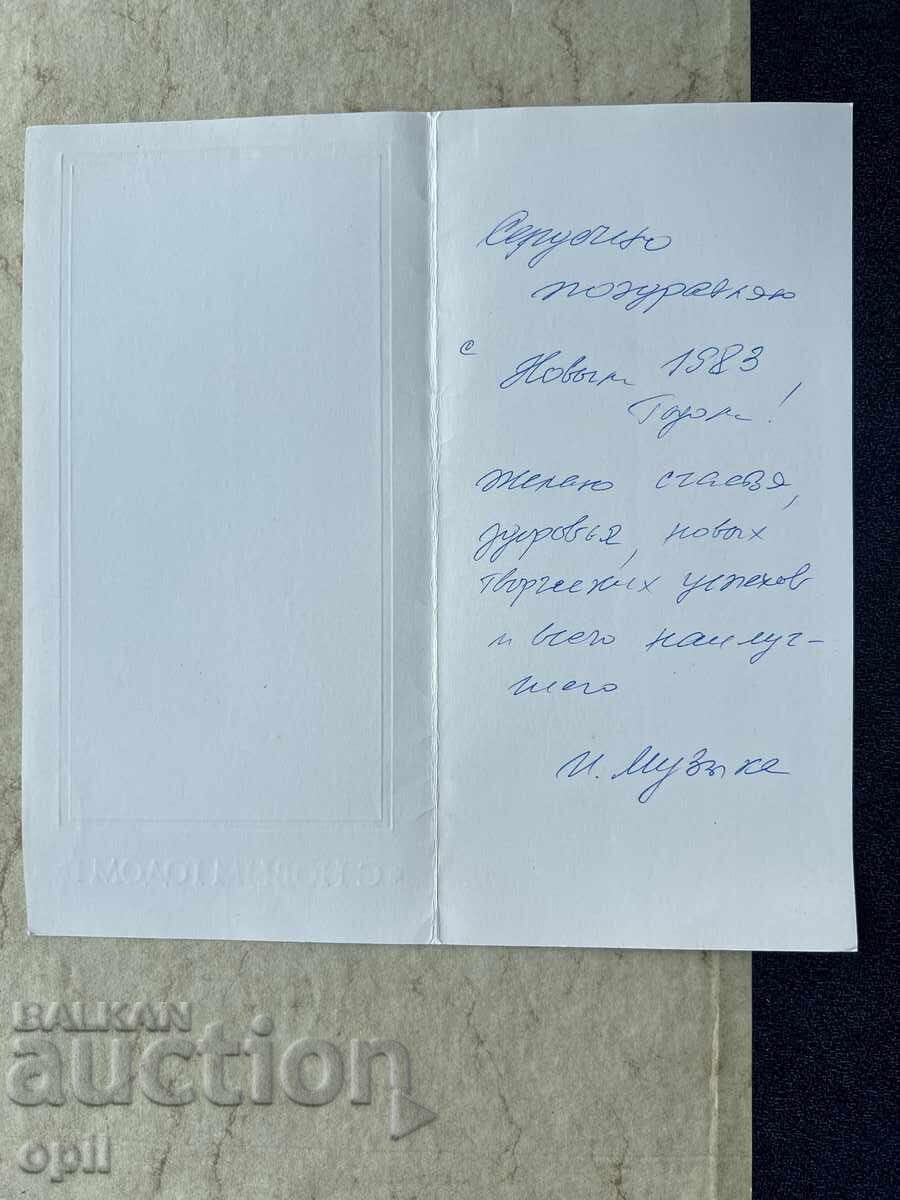 Сердечно
поздравляю
с Новым 1983
Годом!
желаю счастья,
здоровья, новых
творческих успехов
и всего наилуч-
шего
И. Музыка
BALKAN
auction
opil